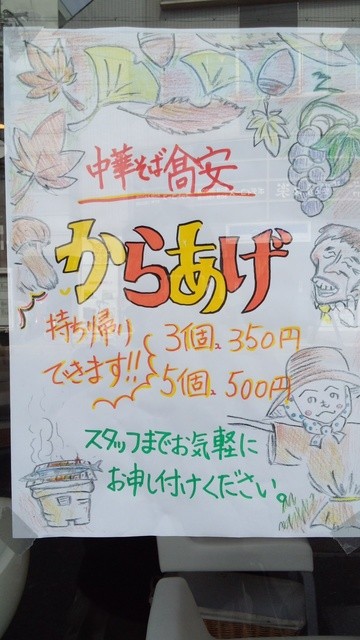 中華そば髙安
からあげ
持ち帰り
できます!!
3個、350円
5個、500円
スタッフまでお気軽に
お申し付けください。